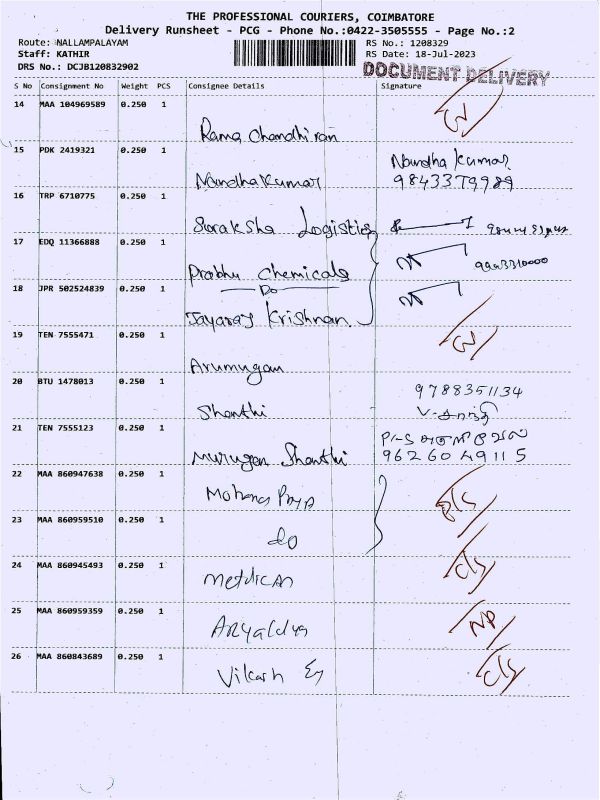 THE PROFESSIONAL COURIERS, COIMBATORE
Delivery Runsheet - PCG - Phone No.:0422-3505555 - Page No.:2
Route: NALLAMPALAYAM RS No.: 1208329
Staff: KATHIR RS Date: 18-Jul-2023
DRS No.: DCJB120832902 DOCUMENT DELIVERY
S No Consignment No Weight PCS Consignee Details Signature
14 MAA 104969589 0.250 1
Rama Chandhiran
15 PDK 2419321 0.250 1 Nandha Kumar
NandhaKumar 9843379989
16 TRP 6710775 0.250 1
Suraksha Logistics
17 EDQ 11366888 0.250 1
Prabhu Chemicals
Do
18 JPR 502524839 0.250 1
Jayaraj Krishnan
19 TEN 7555471 0.250 1
Arumugam
20 BTU 1478013 0.250 1 9788351134
Shanthi V. சாந்தி
21 TEN 7555123 0.250 1
Murugan Shanthi 96260 49115
22 MAA 860947638 0.250 1
Mohana Priya
23 MAA 860959510 0.250 1
do
24 MAA 860945493 0.250 1 c/s
25 MAA 860959359 0.250 1 NP
26 MAA 860843689 0.250 1 c/s
Vikash